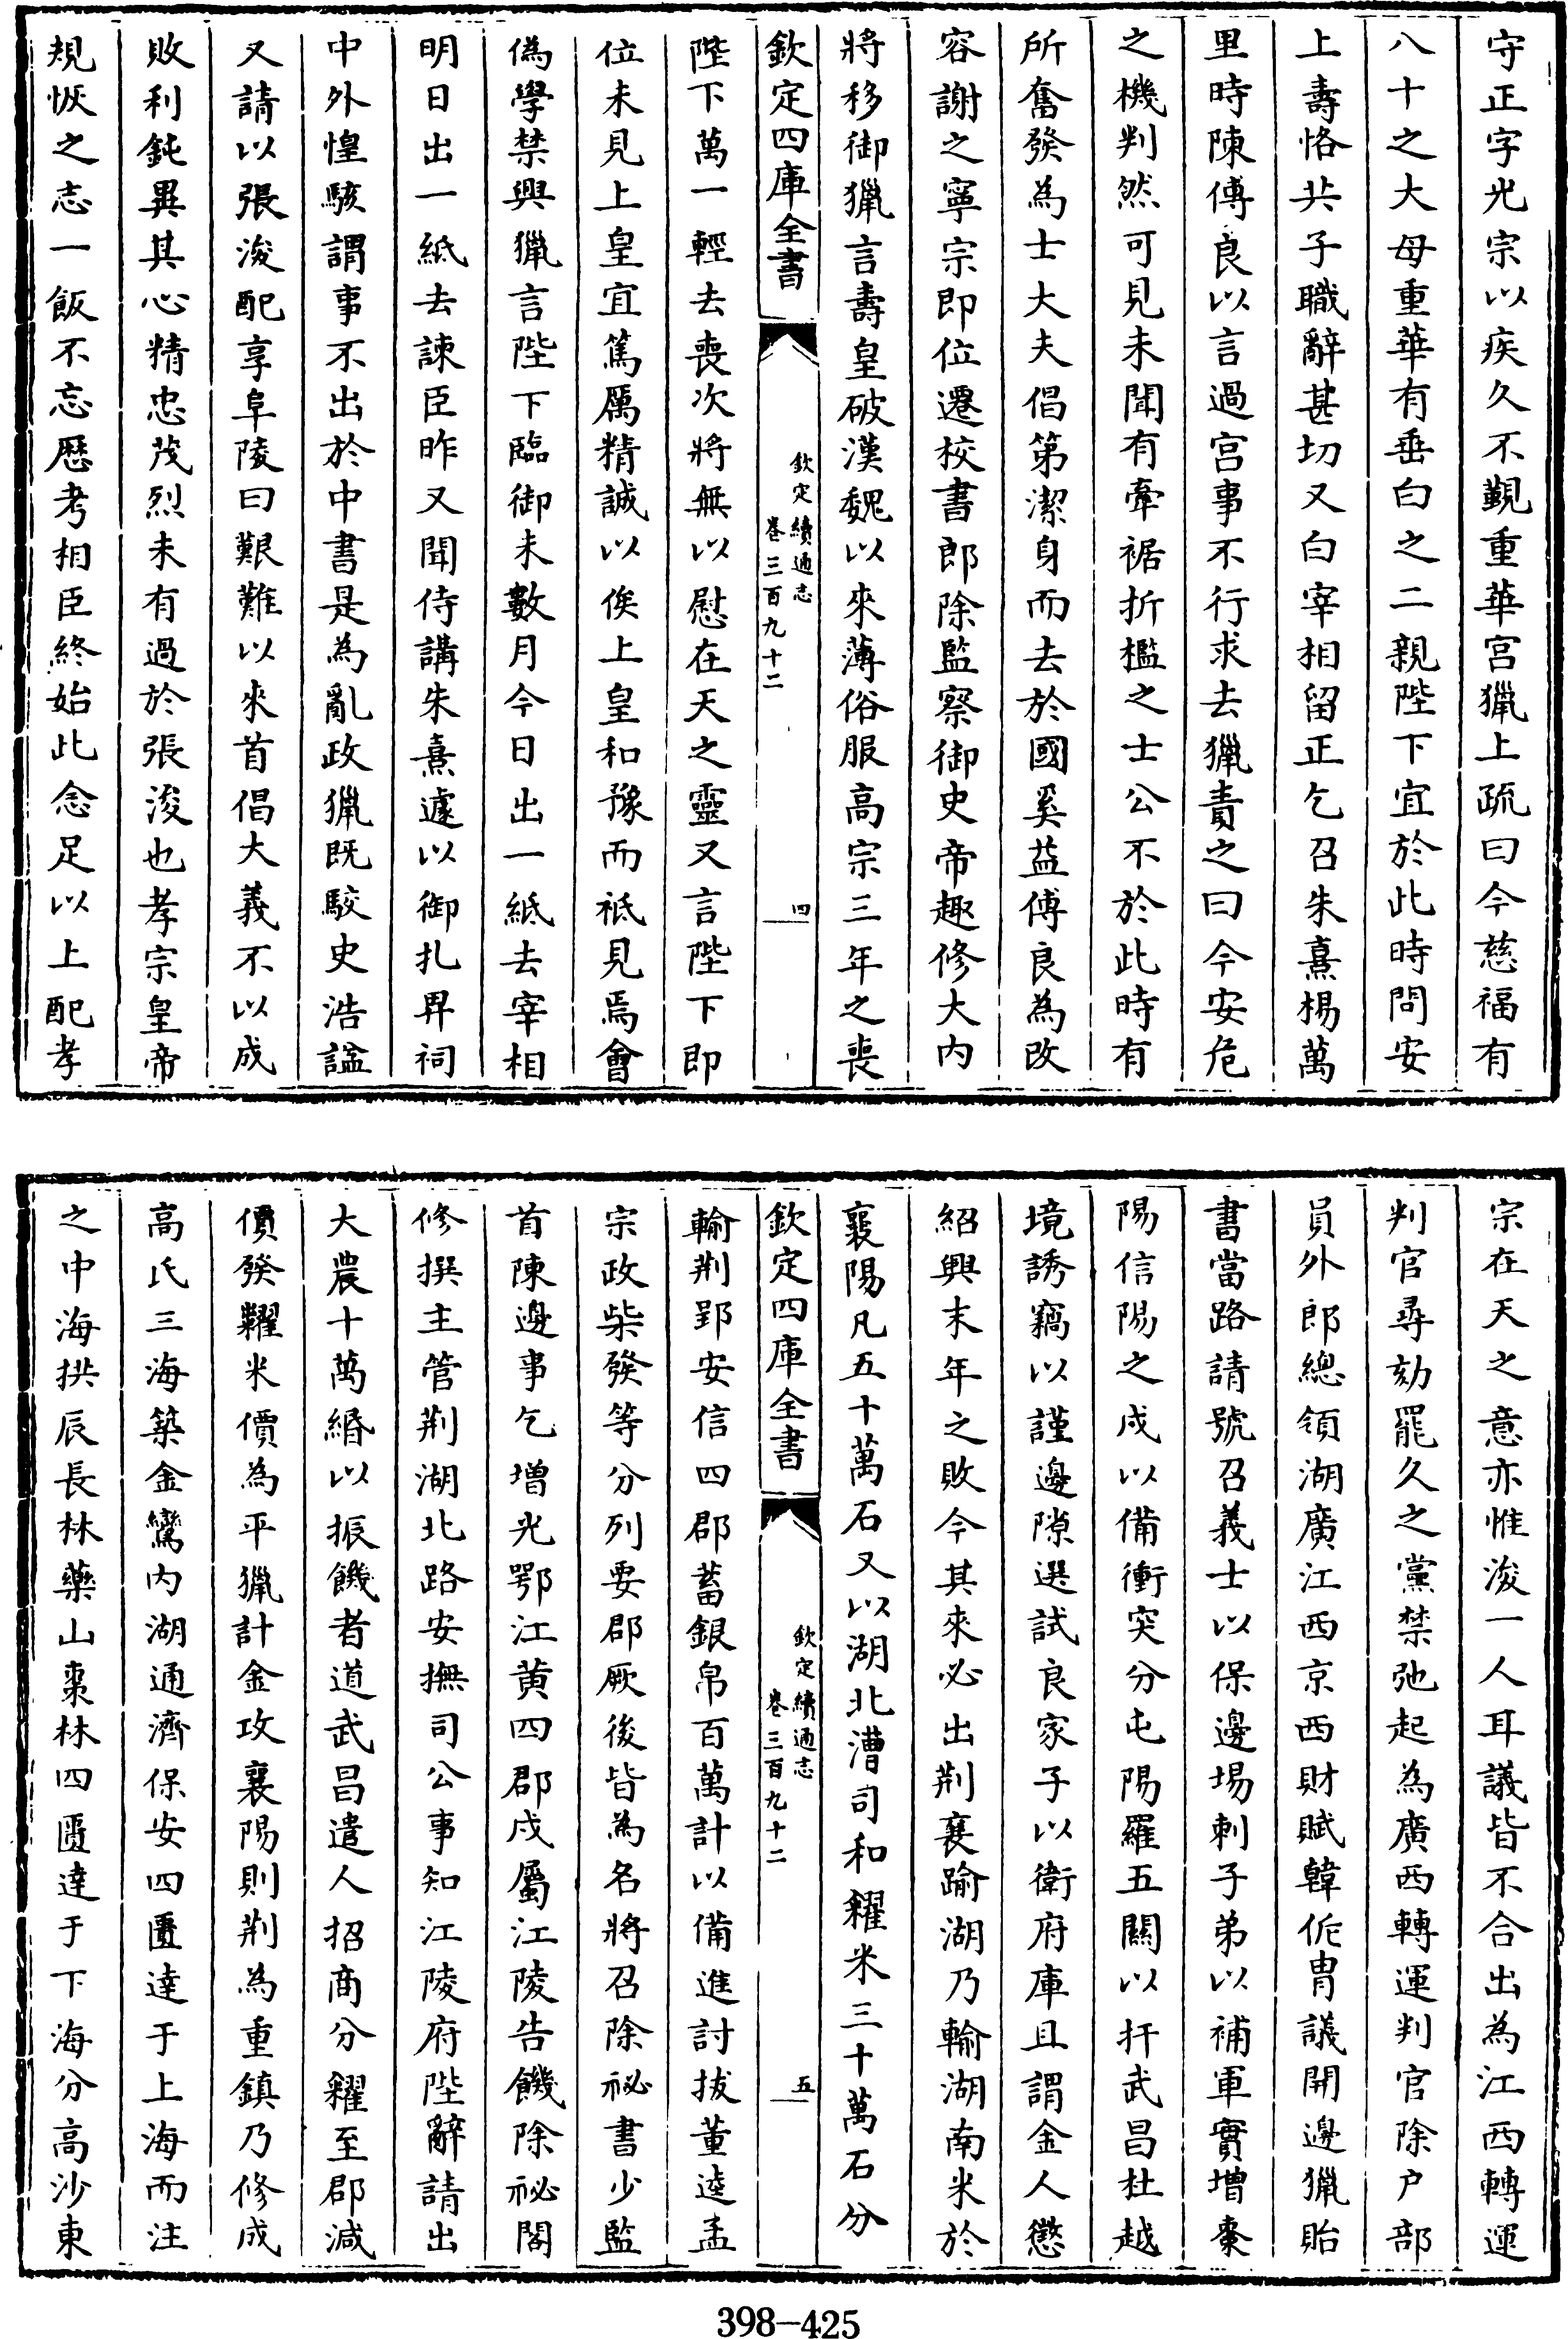 守正字光宗以疾久不覲重華宮獵上疏曰今慈福有
八十之大母重華有垂白之二親陛下宜於此時問安
上壽恪共子職辭甚切又白宰相留正乞召朱熹楊萬
里時陳傅良以言過宮事不行求去獵責之曰今安危
之機判然可見未聞有牽裾折檻之士公不於此時有
所奮發為士大夫倡第潔身而去於國奚益傅良為改
容謝之寧宗即位遷校書郎除監察御史帝趣修大內
將移御獵言壽皇破漢魏以來薄俗服高宗三年之喪
欽定四庫全書
欽定續通志
卷三百九十二
四
陛下萬一輕去喪次將無以慰在天之靈又言陛下即
位未見上皇宜篤厲精誠以俟上皇和豫而祗見焉會
偽學禁興獵言陛下臨御未數月今日出一紙去宰相
明日出一紙去諫臣昨又聞侍講朱熹遽以御札畀祠
中外惶駭謂事不出於中書是為亂政獵既駁史浩諡
又請以張浚配享阜陵曰艱難以來首倡大義不以成
敗利鈍異其心精忠茂烈未有過於張浚也孝宗皇帝
規恢之志一飯不忘歷考相臣終始此念足以上配孝
宗在天之意亦惟浚一人耳議皆不合出為江西轉運
判官尋劾罷久之黨禁弛起為廣西轉運判官除户部
員外郎總領湖廣江西京西財賦韓侂胄議開邊獵貽
書當路請號召義士以保邊場刺子弟以補軍實增棗
陽信陽之戍以備衝突分屯陽羅五關以扞武昌杜越
境誘竊以謹邊隙選試良家子以衛府庫且謂金人懲
紹興末年之敗今其來必出荆襄踰湖乃輸湖南米於
襄陽凡五十萬石又以湖北漕司和糴米三十萬石分
欽定四庫全書
欽定續通志
卷三百九十二
五
輸荆郢安信四郡蓄銀帛百萬計以備進討拔董逵孟
宗政柴發等分列要郡厥後皆為名將召除祕書少監
首陳邊事乞增光鄂江黄四郡戍屬江陵告饑除祕閣
修撰主管荆湖北路安撫司公事知江陵府陛辭請出
大農十萬緡以振饑者道武昌遣人招商分糴至郡減
價發糶米價為平獵計金攻襄陽則荆為重鎮乃修成
高氏三海築金鸞內湖通濟保安四匱達于上海而注
之中海拱辰長林藥山棗林四匱達于下海分高沙東
398-425